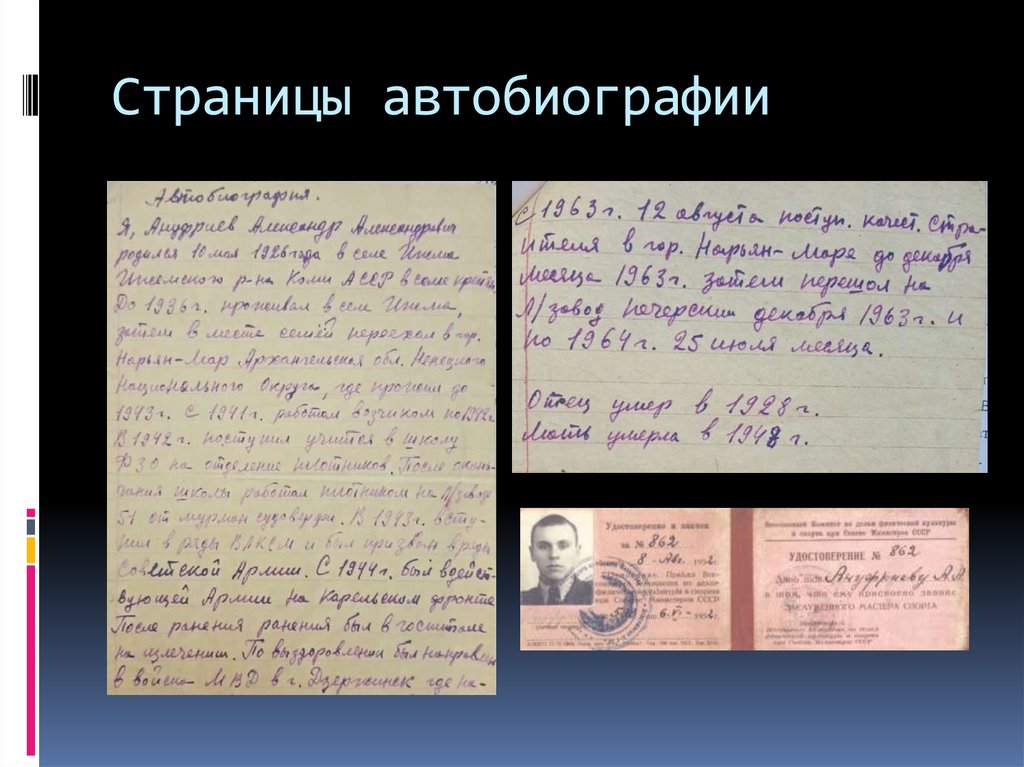 Страницы автобиографии
Автобиография.
Я, Ануфриев Александр Александрович
родился 10 мая 1926 года в селе Ижма
Ижемского р-на Коми АССР в семе
До 1936 г. проживал в селе Ижма,
затем в месте семьёй переехал в гор.
Нарьян-Мар Архангельская обл. Ненецкого
Национального Округа, где прожил до
1943 г. С 1941 г. работал возчиком по 1942 г.
В 1942 г. поступил учится в школу
ФЗО на отделение плотников. После окон-
чания школы работал плотником на л/завод
51 от мурман судоверфи. В 1943 г. всту-
пил в ряды ВЛКСМ и был призван в ряды
Советской Армии. С 1944 г. был в дейст-
вующей Армии на Карельском фронте
После ранения ранения был в госпитале
на излечении. По выздоровлении был направлен
в войска МВД в г. Дзержинск где на-
с 1963 г. 12 августа поступ. качест. стро-
ителя в гор. Нарьян-Маре до декабря
месяца 1963 г. затем перешол на
Л/завод печерский декабря 1963 г. и
по 1964 г. 25 июля месяца.
Отец умер в 1928 г.
Мать умерла в 1948 г.
Удостоверение и значок
за № 862
8 - Авг. 1952 г.
6.VI - 1952
Всесоюзный Комитет по делам физической культуры
и спорта при Совете Министров СССР
УДОСТОВЕРЕНИЕ № 862
Ануфриеву А.А.
в том, что ему присвоено звание
ЗАСЛУЖЕННОГО МАСТЕРА СПОРТА